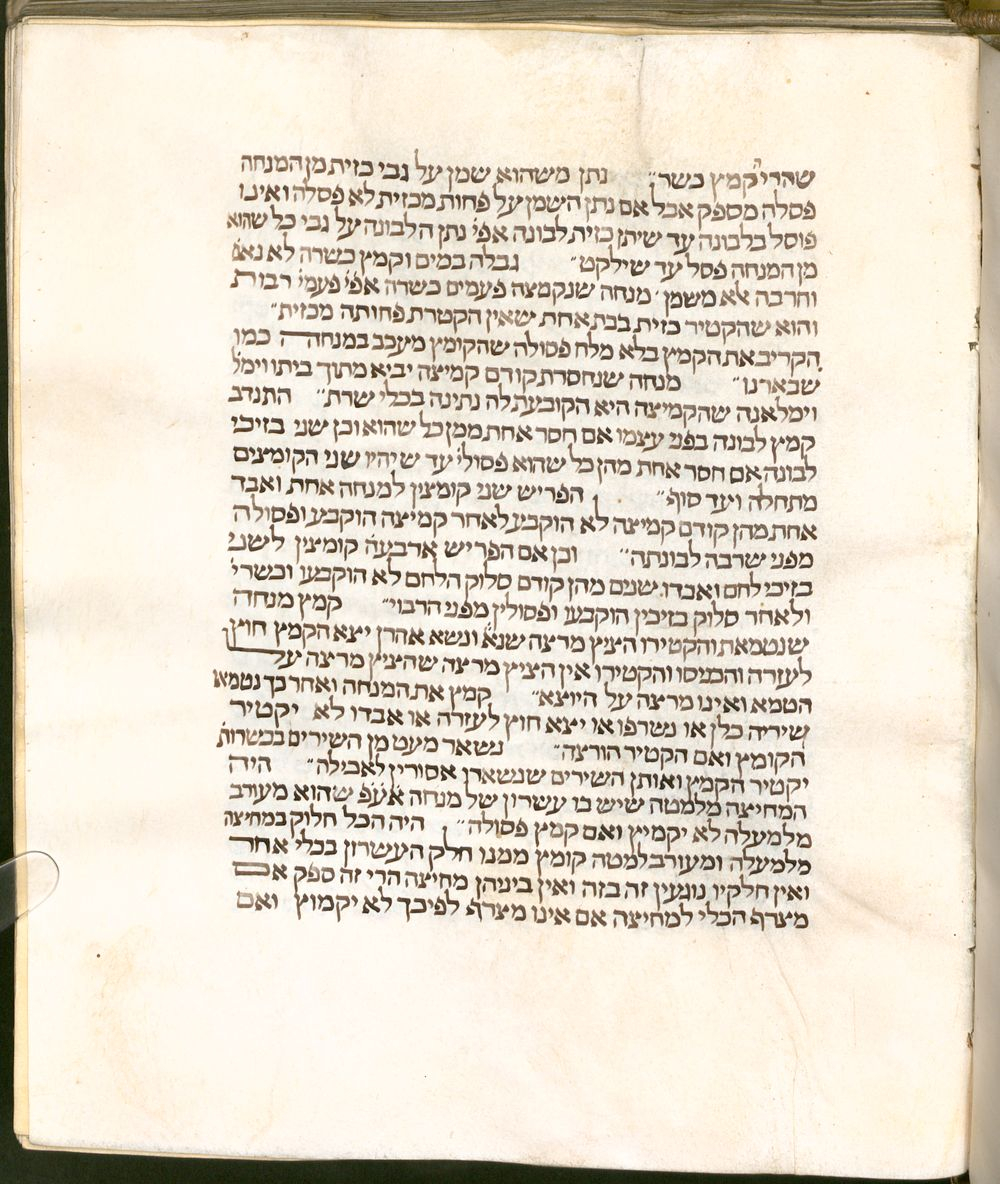 שהרי קמץ כשר״ נתן משהוא שמן על גבי כזית מן המנחה
פסלה מספק אבל אם נתן השמן על פחות מכזית לא פסלה ואינו
פוסל בלבונה עד שיתן כזית לבונה אפי׳ נתן הלבונה על גבי כל שהוא
מן המנחה פסל עד שילקט״ גבלה במים וקמץ כשרה לא נאמ׳
וחרבה אלא משמן׳ מנחה שנקמצה פעמים כשרה אפי׳ פעמי׳ רבות
והוא שהקטיר כזית בבת אחת שאין הקטרת פחותה מכזית״
הקריב את הקמץ בלא מלח פסולה שהקומץ מעכב במנחה כמו
שבארנו״ מנחה שנחסרת קודם קמיצה יביא מתוך ביתו וימל
וימלאנה שהקמיצה היא הקובעת לה נתינה בכלי שרת״ התנדב
קמץ לבונה בפני עצמו אם חסר אחת ממן כל שהוא וכן שני בזיכי
לבונה אם חסר אחת מהן כל שהוא פסולי׳ עד שיהיו שני הקומצים
מתחלה ועד סוף״ הפריש שני קומצין למנחה אחת ואבד
אחת מהן קודם קמיצה לא הוקבע לאחר קמיצה הוקבע ופסולה
מפני שרבה לבונתה״ וכן אם הפריש ארבעה קומצין לשני
בזיכי לחם ואבדו שנים מהן קודם סלוק הלחם לא הוקבעו וכשרי׳
ולאחר סלוק בזיכין הוקבעו ופסולין מפני הרבוי״ קמץ מנחה
שנטמאת והקטירו הציץ מרצה שנא׳ ונשא אהרן יצא הקמץ חוץ
לעזרה והכניסו והקטירו אין הציץ מרצה שהציץ מרצה על
הטמא ואינו מרצה על היוצא״ קמץ את המנחה ואחר כך נטמאו
שיריה כלן או נשרפו או יצא חוץ לעזרה או אבדו לא יקטיר
הקומץ ואם הקטיר הורצה״ נשאר מעט מן השירים בכשרות
יקטיר הקמץ ואותן השירים שנשארן אסורין לאכילה״ היה
המחיצה מלמטה שיש בו עשרון של מנחה אע׳פ׳ שהוא מעורב
מלמעלה לא יקמיץ ואם קמץ פסולה״ היה הכל חלוק במחיצה
מלמעלה ומעורב למטה קומץ ממנו חלק העשרון בכלי אחד
ואין חלקיו נוגעין זה בזה ואין ביניהן מחיצה הרי זה ספק אם
מצרף הכלי למחיצה אם אינו מצרף לפיכך לא יקמוץ ואם